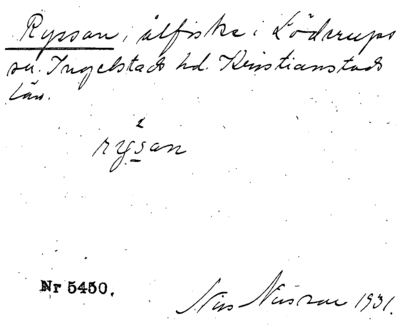 Ryssan, ålfiske i Löderups
sn. Ingelstads hd. Kristianstads
län.
rysan
Nr 5450.
Nils 1931.